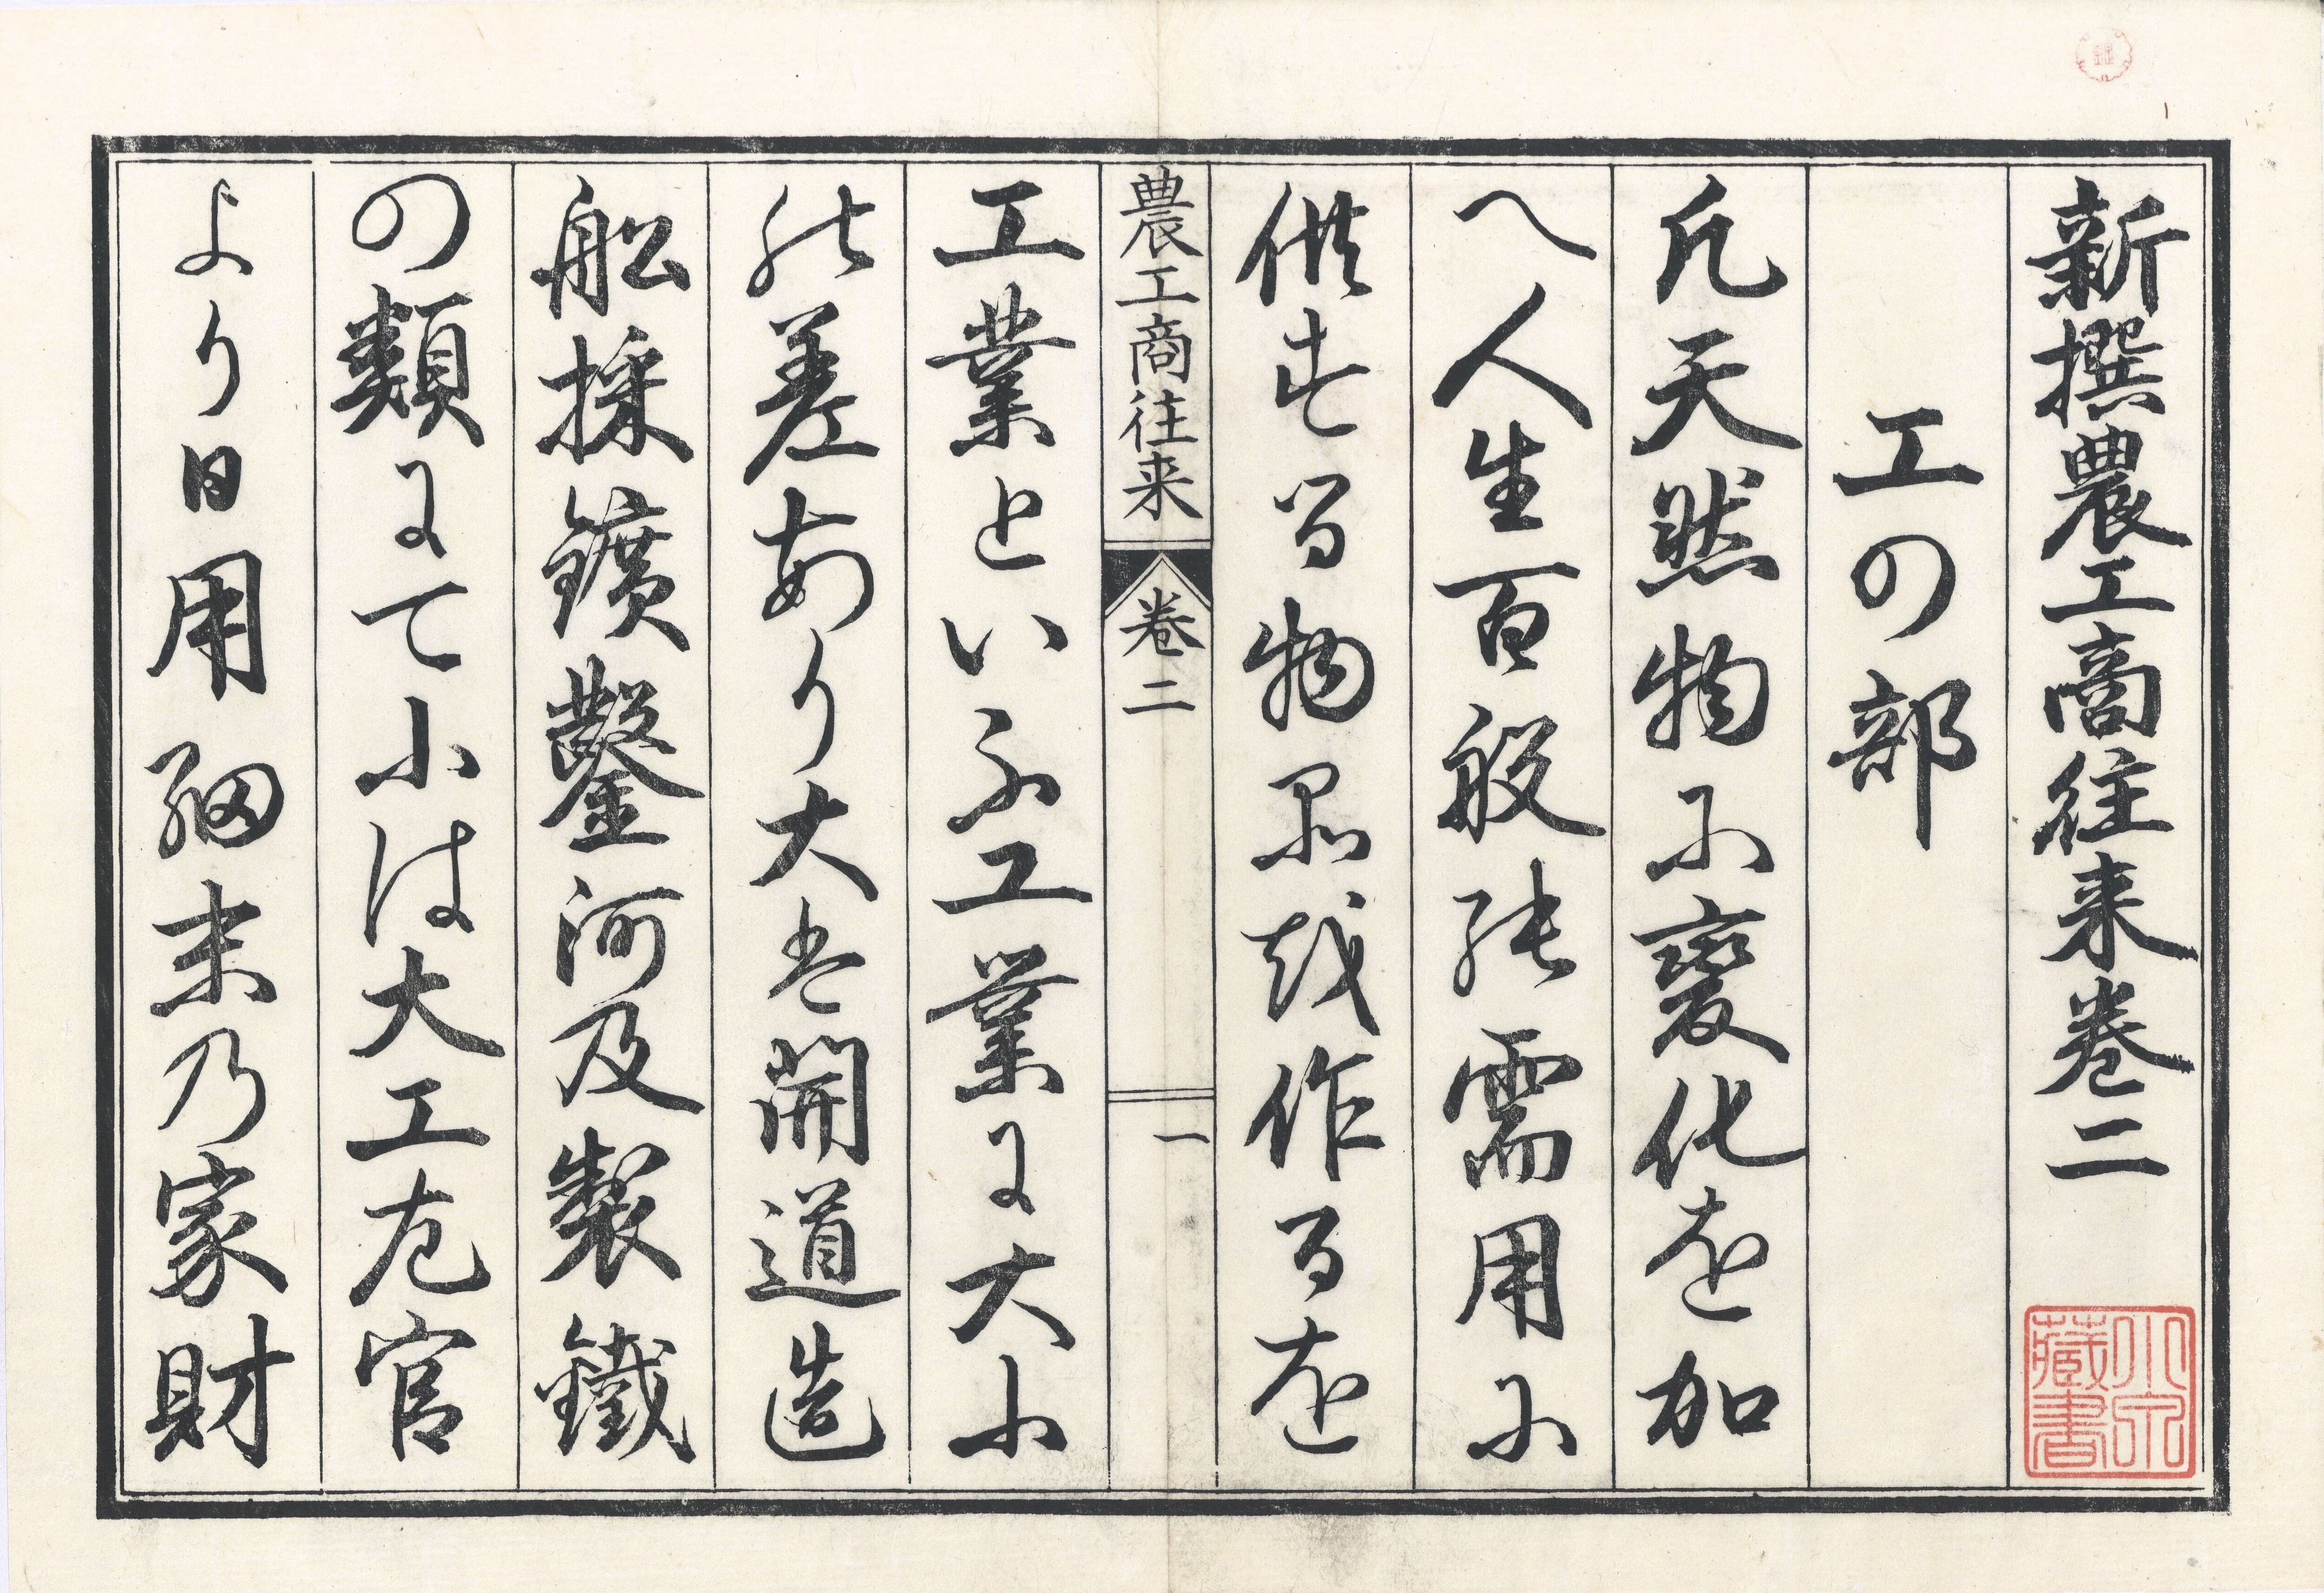 新撰農工商往来巻二
工の部
凡天然物に変化を加
へ人生百般の需用に
供する物品を作るを
農工商往来
巻二
一
工業といふ工業に大小
の差あり大は開道造
船採鑛鑿河及製鐵
の類にて小は大工左官
より日用細末の家財
小宗
藏書